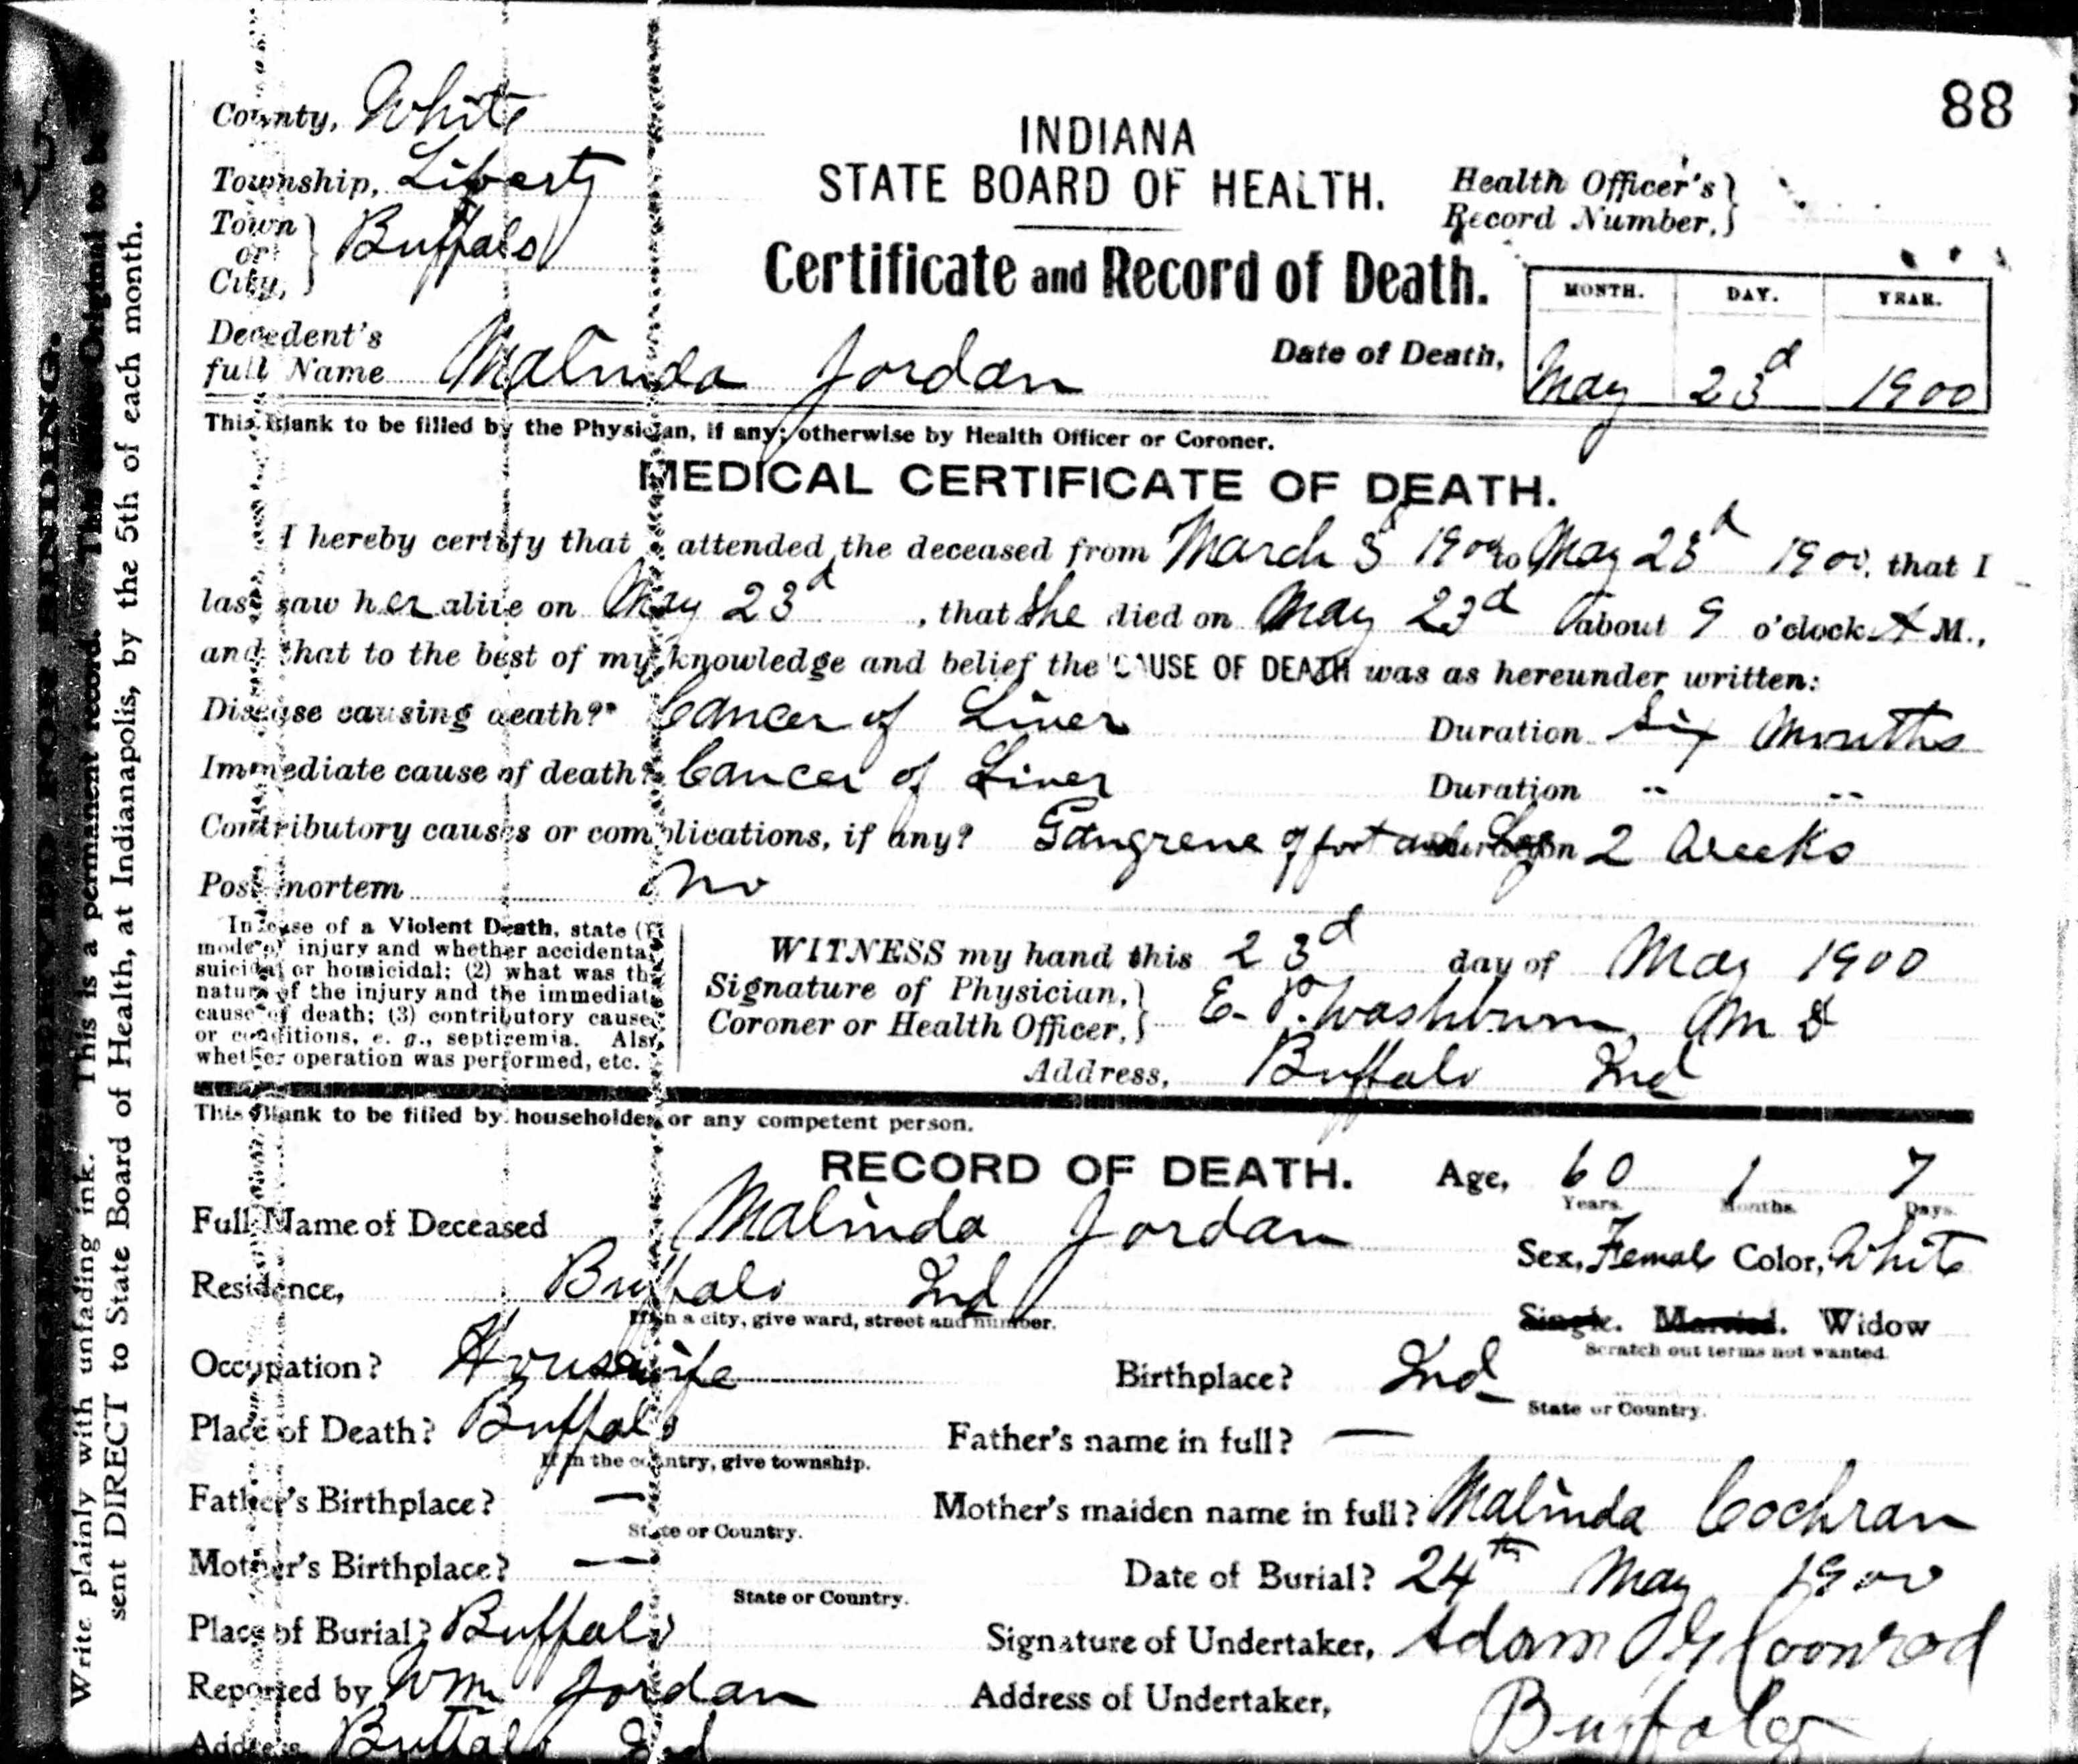 88
County, White
INDIANA
Township, Liberty
STATE BOARD OF HEALTH.
Health Officer's
Record Number,
Town or City, Buffalo
Certificate and Record of Death.
MONTH. DAY. YEAR.
Decedent's full Name Malinda Jordan
Date of Death, May 23d 1900
This Blank to be filled by the Physician, if any; otherwise by Health Officer or Coroner.
MEDICAL CERTIFICATE OF DEATH.
I hereby certify that attended the deceased from March 3d 1900 to May 23d 1900, that I
last saw her alive on May 23d, that She died on May 23d about 9 o'clock A M.,
and that to the best of my knowledge and belief the CAUSE OF DEATH was as hereunder written:
Disease causing death? Cancer of Liver Duration Six Months
Immediate cause of death? Cancer of Liver Duration " "
Contributory causes or complications, if any? Gangrene of foot and Leg Duration 2 Weeks
Post mortem No
In case of a Violent Death, state (1)
mode of injury and whether accidental
suicidal or homicidal; (2) what was the
nature of the injury and the immediate
cause of death; (3) contributory causes
or conditions, e. g., septicemia. Also
whether operation was performed, etc.
WITNESS my hand this 23d day of May 1900
Signature of Physician, Coroner or Health Officer, E. P. Washburn, M D
Address, Buffalo Ind
This Blank to be filled by householder or any competent person.
RECORD OF DEATH.
Age, 60 Years. 1 Months. 7 Days.
Full Name of Deceased Malinda Jordan
Sex, Female Color, White
Residence, Buffalo Ind
If in a city, give ward, street and number.
Single. Married. Widow
Scratch out terms not wanted.
Occupation? Housewife
Birthplace? Ind
State or Country.
Place of Death? Buffalo
If in the country, give township.
Father's name in full? —
Father's Birthplace? —
State or Country.
Mother's maiden name in full? Malinda Cochran
Mother's Birthplace? —
State or Country.
Date of Burial? 24th May 1900
Place of Burial? Buffalo
Signature of Undertaker, Adam Coonrod
Reported by Wm Jordan
Address of Undertaker, Buffalo
Address Buffalo Ind
Write plainly with unfading ink. This is a permanent record. The Original to be
sent DIRECT to State Board of Health, at Indianapolis, by the 5th of each month.